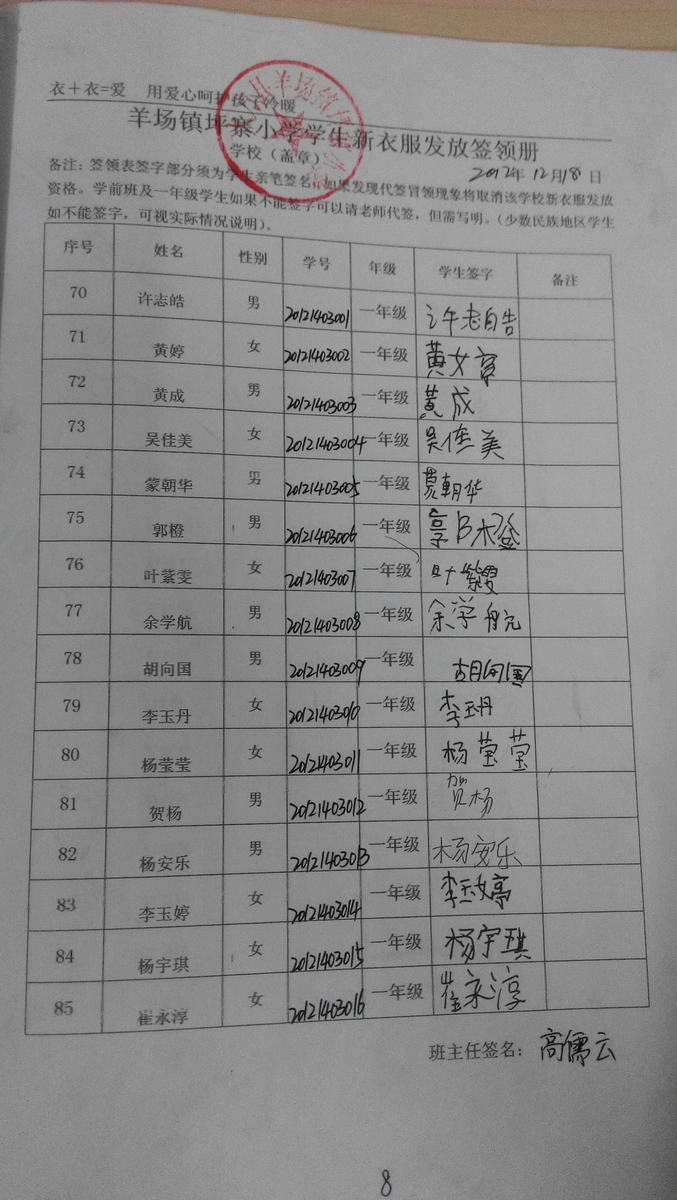 衣+衣=爱 用爱心呵护孩子冷暖
羊场镇坪寨小学学生新衣服发放签领册
学校（盖章） 2012年12月18日
备注：签领表签字部分须为学生亲笔签名，如果发现代签冒领现象将取消该学校新衣服发放
资格。学前班及一年级学生如果不能签字可以请老师代签，但需写明。（少数民族地区学生
如不能签字，可视实际情况说明）。
序号 姓名 性别 学号 年级 学生签字 备注
70 许志皓 男 20121403001 一年级 许志皓
71 黄婷 女 20121403002 一年级 黄婷
72 黄成 男 20121403003 一年级 黄成
73 吴佳美 女 20121403004 一年级 吴佳美
74 蒙朝华 男 20121403005 一年级 蒙朝华
75 郭橙 男 20121403006 一年级 郭橙
76 叶紫雯 女 20121403007 一年级 叶紫雯
77 余学航 男 20121403008 一年级 余学航
78 胡向国 男 20121403009 一年级 胡向国
79 李玉丹 女 20121403010 一年级 李玉丹
80 杨莹莹 女 20121403011 一年级 杨莹莹
81 贺杨 男 20121403012 一年级 贺杨
82 杨安乐 男 20121403013 一年级 杨安乐
83 李玉婷 女 20121403014 一年级 李玉婷
84 杨宇琪 女 20121403015 一年级 杨宇琪
85 崔永淳 女 20121403016 一年级 崔永淳
班主任签名：高儒云
8